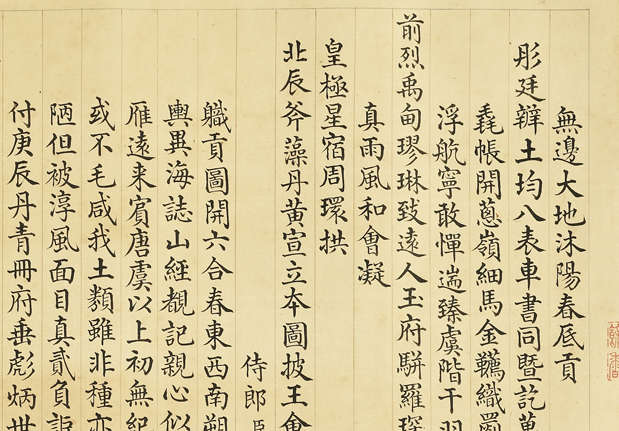 無邊大地沐陽春底貢
彤廷辯土均八表車書同暨訖萬
毳帳開蔥嶺細馬金韉織罽
浮航寧敢憚遄臻虞階干羽
前烈禹甸璆琳致遠人玉府駢羅琛
真雨風和會凝
皇極星宿周環拱
北辰斧藻丹黃宣立本圖披王會
侍郎臣
職貢圖開六合春東西南朔
輿異海誌山經覩記親心似
雁遠来賓唐虞以上初無紀
或不毛咸我土類雖非種亦
陋但被淳風面目真貳負詎
付庚辰丹青冊府垂彪炳世